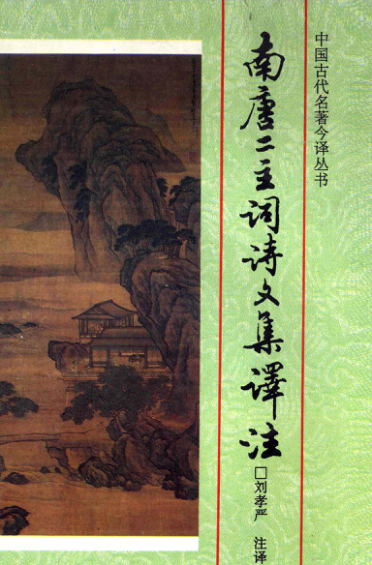 中国古代名著今译丛书
南唐二主词诗文集譯注
□刘孝严 注译